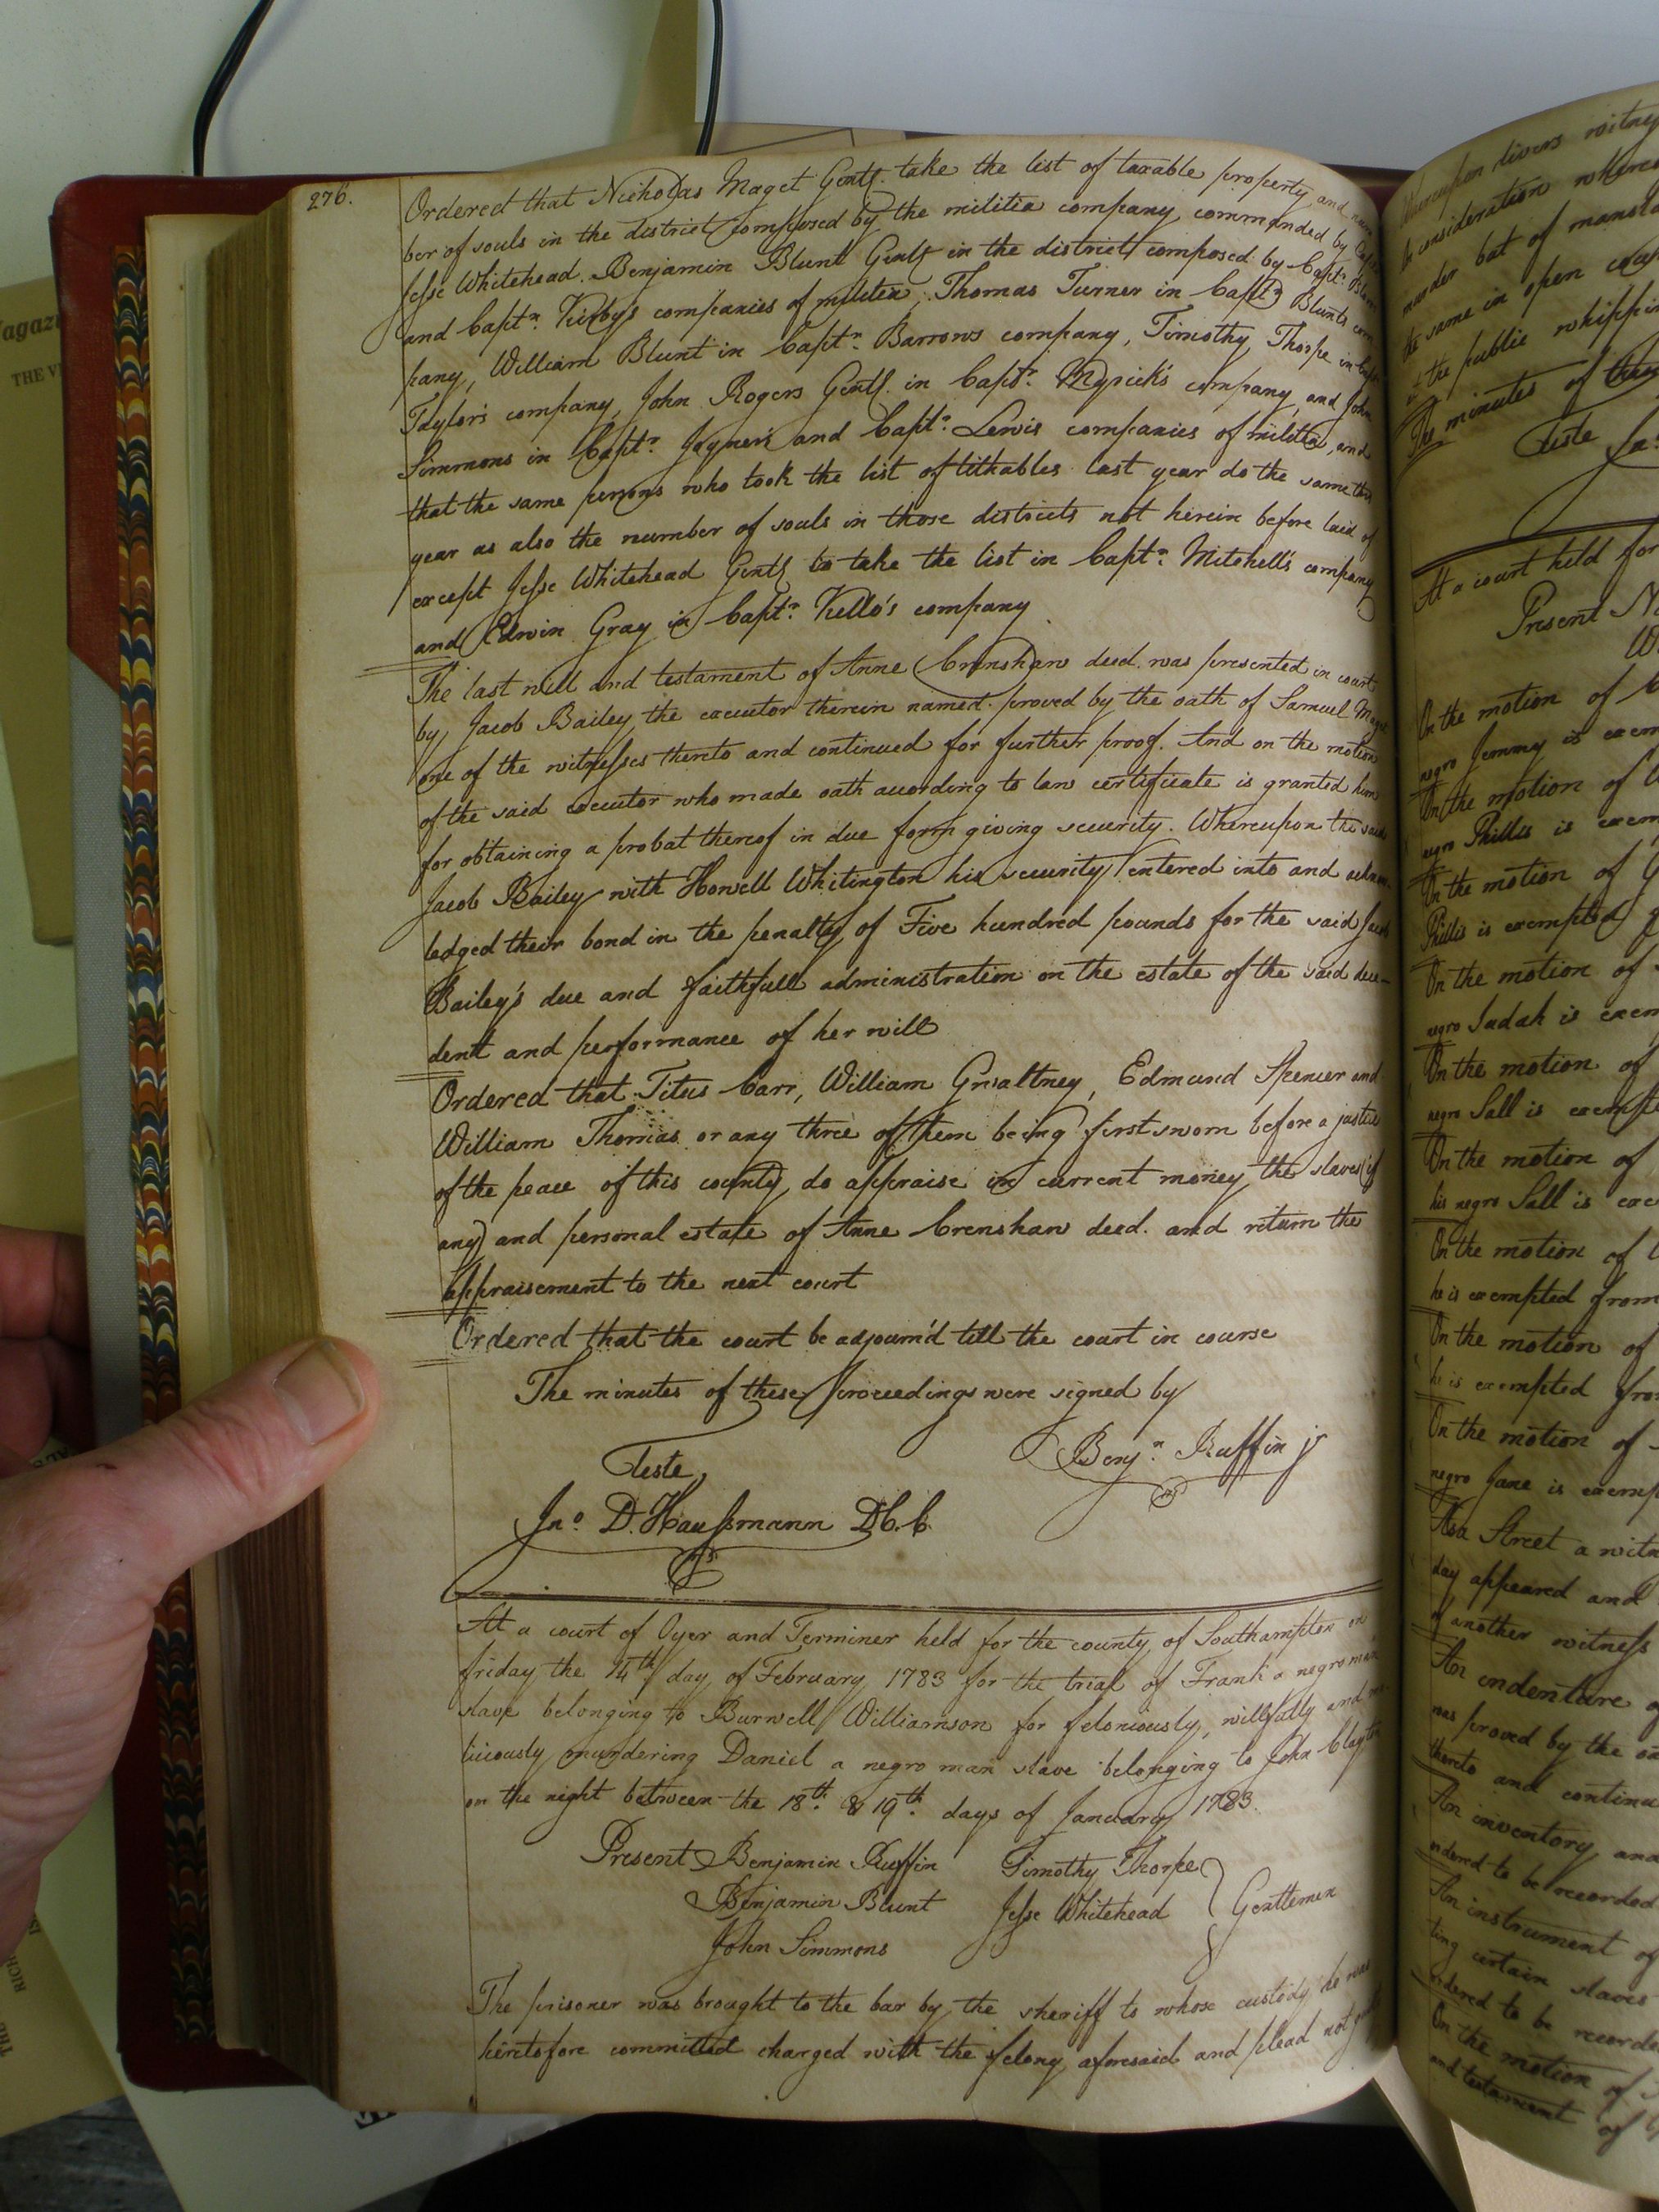 276.
Ordered that Nicholas Maget Gentl. take the list of taxable property and num
ber of souls in the district composed by the militia company commanded by Capt.
Jesse Whitehead. Benjamin Blunt Gentl in the district composed by Capt.n Blunts
and Capt.n Kirby's companies of militia, Thomas Turner in Capt.n Blunts com
pany, William Blunt in Capt.n Barrows company, Timothy Thorpe in Capt.
Taylor's company, John Rogers Gentl. in Capt.n Myrick's company, and John
Simmons in Capt.n Joyner's and Capt.n Lewis companies of militia, and
that the same persons who took the list of tithables last year do the same this
year as also the number of souls in those districts not herein before laid of
except Jesse Whitehead Gentl to take the list in Capt.n Mitchell's company
and Edwin Gray in Capt.n Kello's company
The last will and testament of Anne Crenshaw decd. was presented in court
by Jacob Bailey the executor therein named. proved by the oath of Samuel Maget
one of the witnesses thereto and continued for further proof. And on the motion
of the said executor who made oath according to law certificate is granted him
for obtaining a probat thereof in due form giving security. Whereupon the said
Jacob Bailey with Howell Whitington his security entered into and acknow-
ledged their bond in the penalty of Five hundred pounds for the said Jacob
Bailey's due and faithfull administration on the estate of the said dece-
dent and performance of her will
Ordered that Titus Carr, William Gwaltney, Edmund Spencer and
William Thomas or any three of them being first sworn before a justice
of the peace of this county, do appraise in current money the slaves (if
any) and personal estate of Anne Crenshaw decd. and return the
appraisement to the next court
Ordered that the court be adjourn'd till the court in course
The minutes of these proceedings were signed by
Benj.n Ruffin jr
Teste,
Jno. D. Haussmann D.C.C.
At a court of Oyer and Terminer held for the county of Southampton on
friday the 14th day of February 1783 for the trial of Frank a negro man
slave belonging to Burwell Williamson for feloniously, willfully and ma
liciously murdering Daniel a negro man slave belonging to John Clayton
on the night between the 18th. & 19th. days of January 1783.
Present Benjamin Ruffin Timothy Thorpe
Benjamin Blunt Jesse Whitehead Gentlemen
John Simmons
The prisoner was brought to the bar by the sheriff to whose custody he was
heretofore committed charged with the felony aforesaid and plead not guilty
Whereupon divers witnes
in consideration where
murder but of mansla
the same in open cou
the public whippin
The minutes of these
Teste Ja
At a court held for
Present
On the motion of
negro Jemmy is exem
On the motion of
negro Phillis is exem
On the motion of G
Phillis is exempted f
On the motion of
negro Judah is exem
On the motion of
negro Sall is exempte
On the motion of
his negro Sall is exe
On the motion of
he is exempted from
On the motion of
he is exempted from
On the motion of
negro Jane is exemp
Asa Street a witn
day appeared and
of another witness
An indenture of
was proved by the oa
thereto and continu
An inventory and
ordered to be recorded
An instrument of
ting certain slaves
ordered to be recorde
On the motion of
and testament of